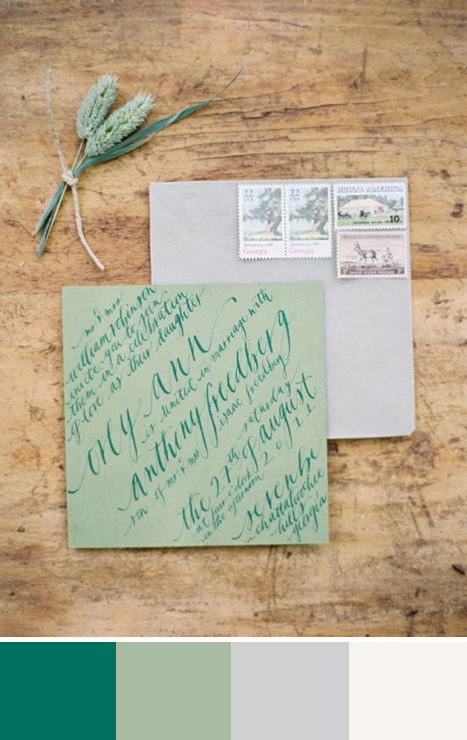 22
USA
Georgia
22
USA
Georgia
RURAL AMERICA
10
mr & mrs
william robinson
invite you to join
them in a celebration
of love as their daughter
orly ann
is united in marriage with
anthony freedberg
son of mr & mrs isaac freedberg
the 27th of august
saturday
2011
at four o'clock
in the afternoon
serenbe
chattahoochee
hills
georgia